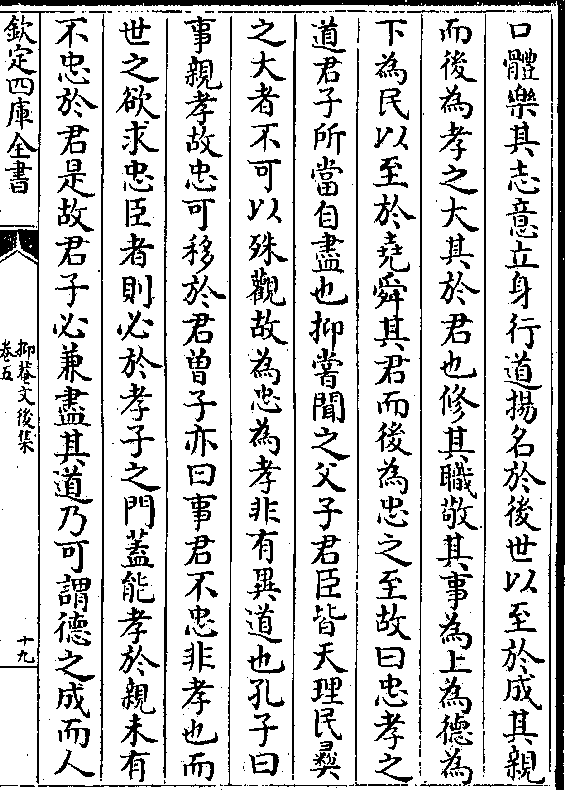 口體樂其志意立身行道揚名於後世以至於成其親
而後為孝之大其於君也修其職敬其事為上為德為
下為民以至於堯舜其君而後為忠之至故曰忠孝之
道君子所當自盡也抑嘗聞之父子君臣皆天理民彛
之大者不可以殊觀故為忠為孝非有異道也孔子曰
事親孝故忠可移於君曾子亦曰事君不忠非孝也而
世之欲求忠臣者則必於孝子之門葢能孝於親未有
不忠於君是故君子必兼盡其道乃可謂德之成而人
欽定四庫全書
抑菴文後集
卷五
十九